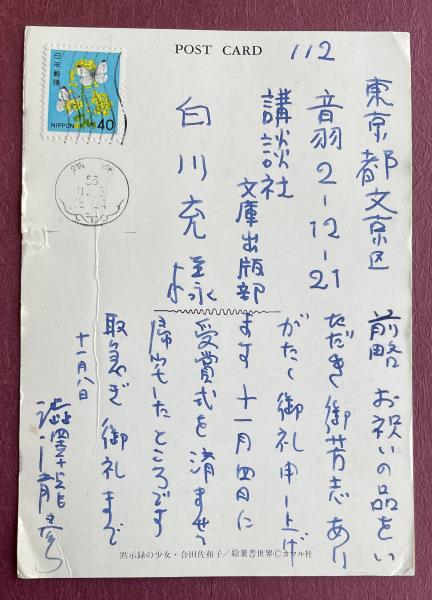 POST CARD
日本郵便
NIPPON
40
56
112
東京都文京区
音羽2-12-21
講談社
文庫出版部
白川充様
前略 お祝いの品をい
ただき御芳志あり
がたく御礼申し上げ
ます 十一月四日に
受賞式を済ませて
帰宅したところです
取急ぎ御礼まで
十一月八日
澁澤龍彦
黙示録の少女・合田佐和子/絵葉書世界©カマル社